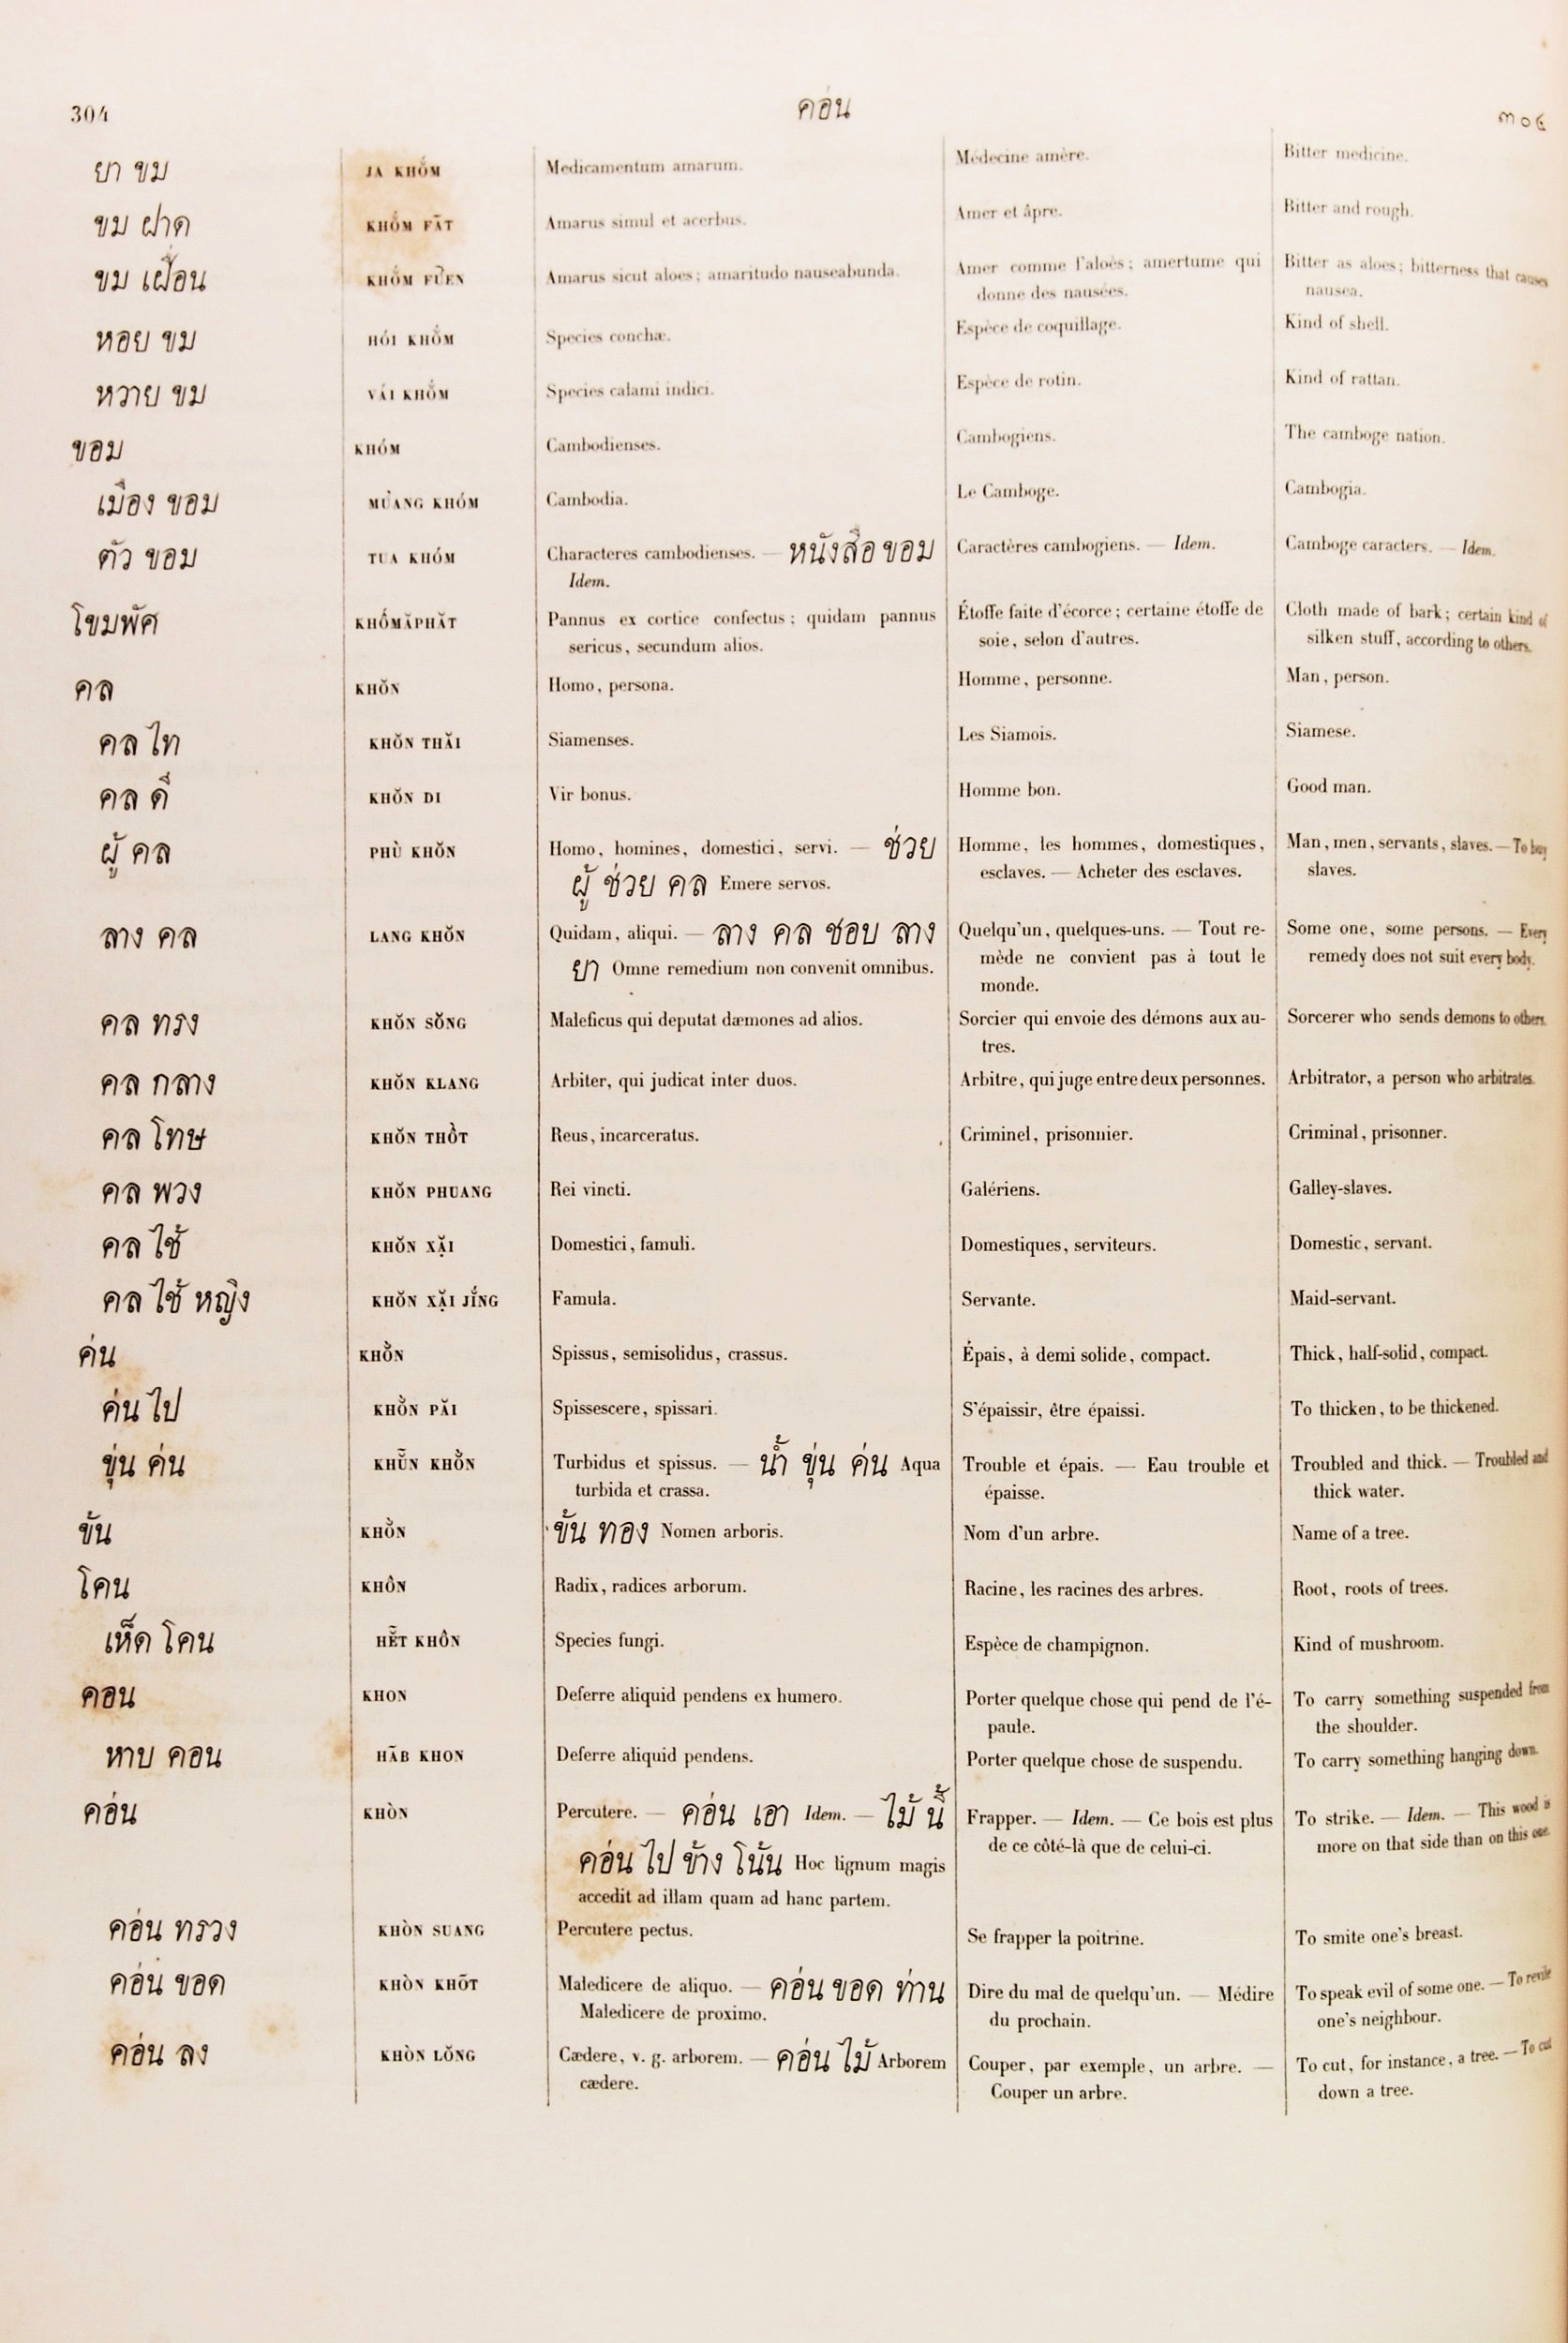 304 คอ่น ๓๐๔
ยา ขม JA KHỐM Medicamentum amarum. Médecine amère. Bitter medicine.
ขม ฝาด KHỐM FĀT Amarus simul et acerbus. Amer et âpre. Bitter and rough.
ขม เฝื่อน KHỐM FU᷄EN Amarus sicut aloes; amaritudo nauseabunda. Amer comme l'aloès; amertume qui Bitter as aloes; bitterness that causes
donne des nausées. nausea.
หอย ขม HÓI KHỐM Species conchæ. Espèce de coquillage. Kind of shell.
หวาย ขม VÁI KHỐM Species calami indici. Espèce de rotin. Kind of rattan.
ขอม KHÓM Cambodienses. Cambogiens. The camboge nation.
เมือง ขอม MU̓ANG KHÓM Cambodia. Le Camboge. Cambogia.
ตัว ขอม TUA KHÓM Characteres cambodienses. — หนังสือ ขอม Caractères cambogiens. — Idem. Camboge caracters. — Idem.
Idem.
โขมพัศ KHỐMĂPHĂT Pannus ex cortice confectus; quidam pannus Étoffe faite d'écorce; certaine étoffe de Cloth made of bark; certain kind of
sericus, secundum alios. soie, selon d'autres. silken stuff, according to others.
คล KHŎN Homo, persona. Homme, personne. Man, person.
คล ไท KHŎN THĂI Siamenses. Les Siamois. Siamese.
คล ดี KHŎN DI Vir bonus. Homme bon. Good man.
ผู้ คล PHÙ KHŎN Homo, homines, domestici, servi. — ช่วย Homme, les hommes, domestiques, Man, men, servants, slaves. — To buy
ผู้ ช่วย คล Emere servos. esclaves. — Acheter des esclaves. slaves.
ลาง คล LANG KHŎN Quidam, aliqui. — ลาง คล ชอบ ลาง Quelqu'un, quelques-uns. — Tout re- Some one, some persons. — Every
ยา Omne remedium non convenit omnibus. mède ne convient pas à tout le remedy does not suit every body.
monde.
คล ทรง KHŎN SŎNG Maleficus qui deputat dæmones ad alios. Sorcier qui envoie des démons aux au- Sorcerer who sends demons to others.
tres.
คล กลาง KHŎN KLANG Arbiter, qui judicat inter duos. Arbitre, qui juge entre deux personnes. Arbitrator, a person who arbitrates.
คล โทษ KHŎN THỒT Reus, incarceratus. Criminel, prisonnier. Criminal, prisonner.
คล พวง KHŎN PHUANG Rei vincti. Galériens. Galley-slaves.
คล ไช้ KHŎN XẶI Domestici, famuli. Domestiques, serviteurs. Domestic, servant.
คล ไช้ หญิง KHŎN XẶI JÍNG Famula. Servante. Maid-servant.
ค่น KHỒN Spissus, semisolidus, crassus. Épais, à demi solide, compact. Thick, half-solid, compact.
ค่น ไป KHỒN PĂI Spissescere, spissari. S'épaissir, être épaissi. To thicken, to be thickened.
ขุ่น ค่น KHŨN KHỒN Turbidus et spissus. — น้ำ ขุ่น ค่น Aqua Trouble et épais. — Eau trouble et Troubled and thick. — Troubled and
turbida et crassa. épaisse. thick water.
ขั้น KHỒN ขั้น ทอง Nomen arboris. Nom d'un arbre. Name of a tree.
โคน KHÔN Radix, radices arborum. Racine, les racines des arbres. Root, roots of trees.
เห็ด โคน HẼT KHÔN Species fungi. Espèce de champignon. Kind of mushroom.
คอน KHON Deferre aliquid pendens ex humero. Porter quelque chose qui pend de l'é- To carry something suspended from
paule. the shoulder.
หาบ คอน HĀB KHON Deferre aliquid pendens. Porter quelque chose de suspendu. To carry something hanging down.
ค่อน KHÒN Percutere. — ค่อน เอา Idem. — ไม้ นี้ Frapper. — Idem. — Ce bois est plus To strike. — Idem. — This wood is
ค่อน ไป ข้าง โน้น Hoc lignum magis de ce côté-là que de celui-ci. more on that side than on this one.
accedit ad illam quam ad hanc partem.
ค่อน ทรวง KHÒN SUANG Percutere pectus. Se frapper la poitrine. To smite one's breast.
ค่อน ขอด KHÒN KHŌT Maledicere de aliquo. — ค่อน ขอด ท่าน Dire du mal de quelqu'un. — Médire To speak evil of some one. — To revile
Maledicere de proximo. du prochain. one's neighbour.
ค่อน ลง KHÒN LŎNG Cædere, v. g. arborem. — ค่อน ไม้ Arborem Couper, par exemple, un arbre. — To cut, for instance, a tree. — To cut
cædere. Couper un arbre. down a tree.